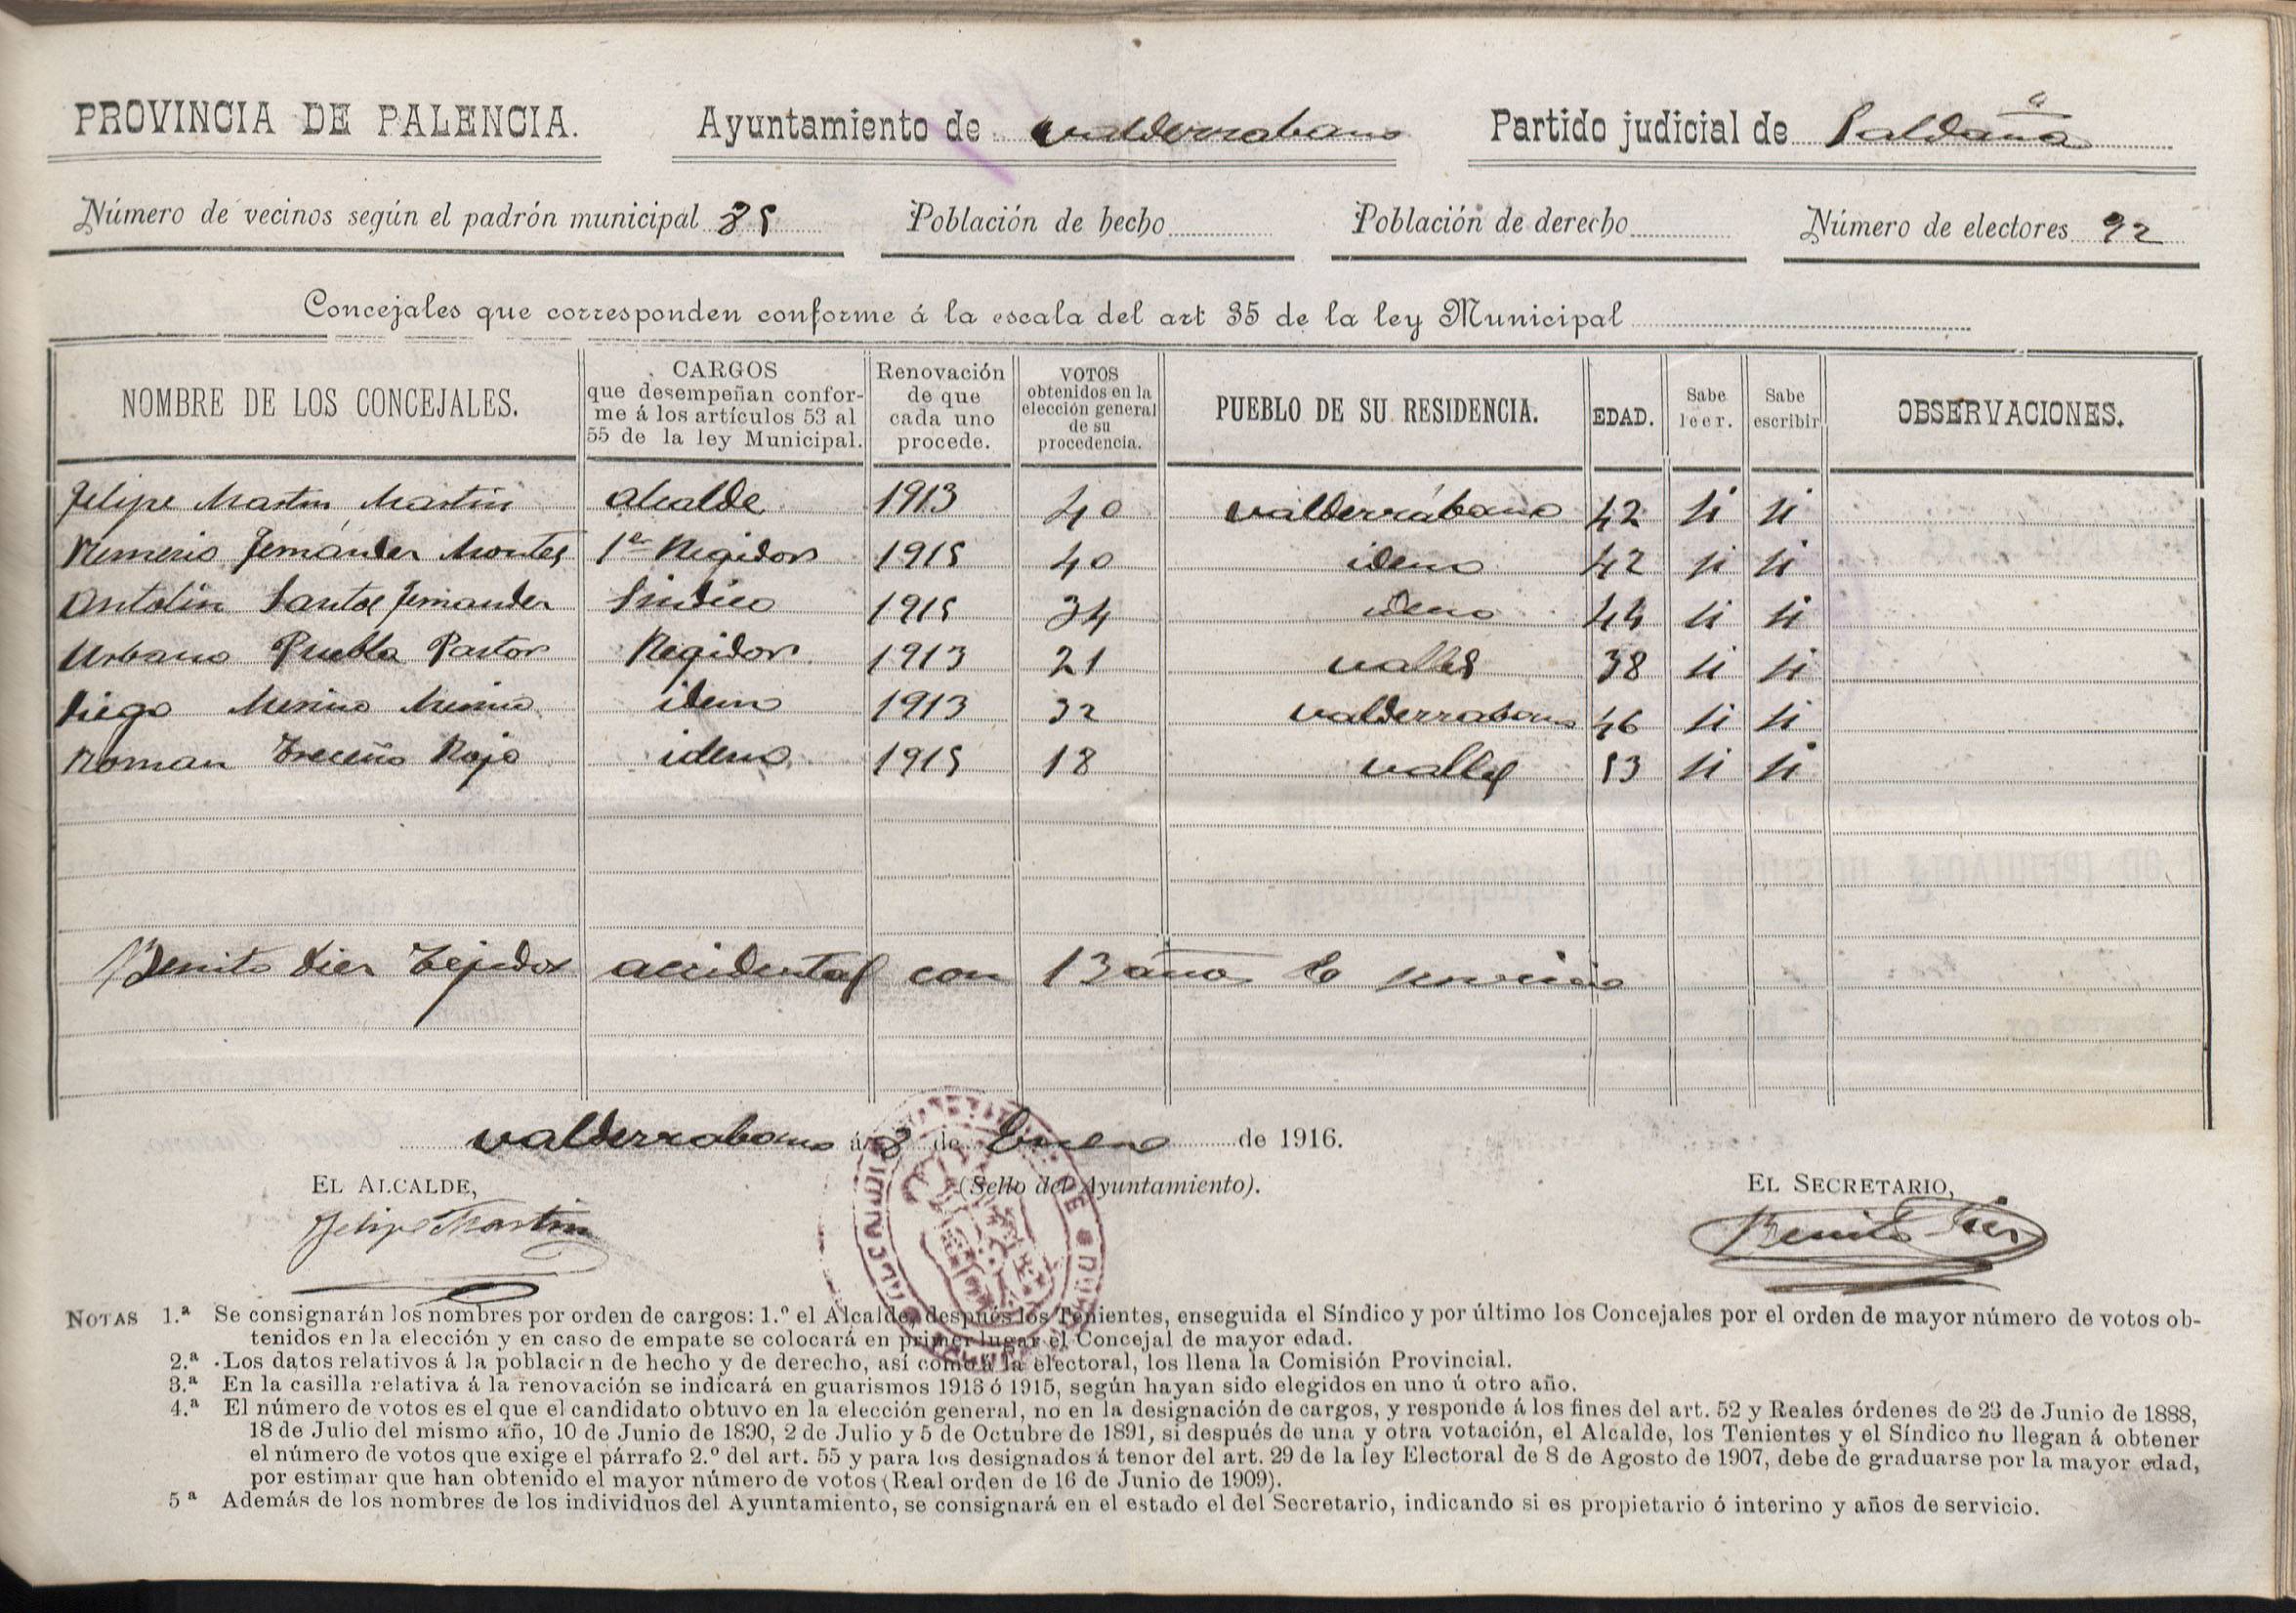 PROVINCIA DE PALENCIA. Ayuntamiento de Valderrabano Partido judicial de Saldaña
Número de vecinos según el padrón municipal 85 Población de hecho Población de derecho Número de electores 92
Concejales que corresponden conforme á la escala del art 35 de la ley Municipal
NOMBRE DE LOS CONCEJALES. CARGOS que desempeñan conforme á los artículos 53 al 55 de la ley Municipal. Renovación de que cada uno procede. VOTOS obtenidos en la elección general de su procedencia. PUEBLO DE SU RESIDENCIA. EDAD. Sabe leer. Sabe escribir OBSERVACIONES.
Felipe Martin Martin alcalde 1913 40 Valderrábano 42 si si
Nemesio Fernández Montes 1er Regidor 1915 40 idem 42 si si
Antolin Santos Fernandez Sindico 1915 34 idem 44 si si
Urbano Puebla Pastor Regidor 1913 21 valles 38 si si
Diego Merino Merino idem 1913 32 Valderrabano 46 si si
Roman Treceño Rojo idem 1915 18 valles 53 si si
Benito Diez Tejedor accidental con 13 años de servicio
Valderrabano á 8 de Enero de 1916.
EL ALCALDE, (Sello del Ayuntamiento). EL SECRETARIO,
Felipe Martin Benito Diez
NOTAS 1.ª Se consignarán los nombres por orden de cargos: 1.º el Alcalde, después los Tenientes, enseguida el Síndico y por último los Concejales por el orden de mayor número de votos ob-
tenidos en la elección y en caso de empate se colocará en primer lugar el Concejal de mayor edad.
2.ª Los datos relativos á la población de hecho y de derecho, así como á la electoral, los llena la Comisión Provincial.
3.ª En la casilla relativa á la renovación se indicará en guarismos 1913 ó 1915, según hayan sido elegidos en uno ú otro año.
4.ª El número de votos es el que el candidato obtuvo en la elección general, no en la designación de cargos, y responde á los fines del art. 52 y Reales órdenes de 23 de Junio de 1888,
18 de Julio del mismo año, 10 de Junio de 1890, 2 de Julio y 5 de Octubre de 1891, si después de una y otra votación, el Alcalde, los Tenientes y el Síndico no llegan á obtener
el número de votos que exige el párrafo 2.º del art. 55 y para los designados á tenor del art. 29 de la ley Electoral de 8 de Agosto de 1907, debe de graduarse por la mayor edad,
por estimar que han obtenido el mayor número de votos (Real orden de 16 de Junio de 1909).
5ª Además de los nombres de los individuos del Ayuntamiento, se consignará en el estado el del Secretario, indicando si es propietario ó interino y años de servicio.